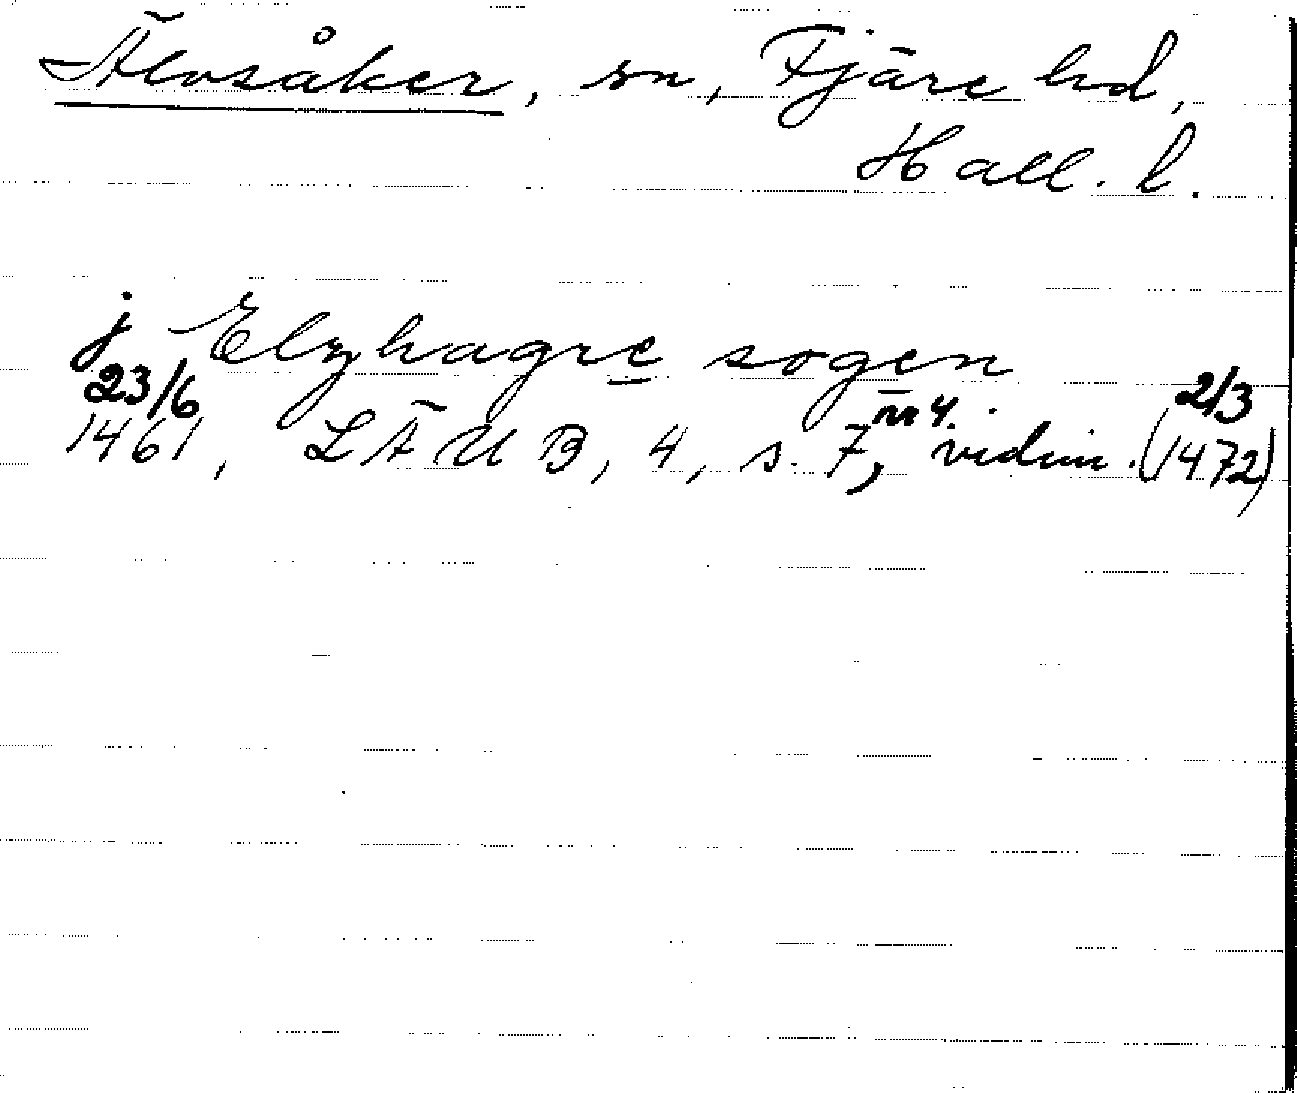 Älvsåker, sn, Fjäre hd,
Hall. l.
j Elzhagre sogen
23/6 1461, LÄUB, 4, s. 7, nr 4. vidim. (2/3 1472)